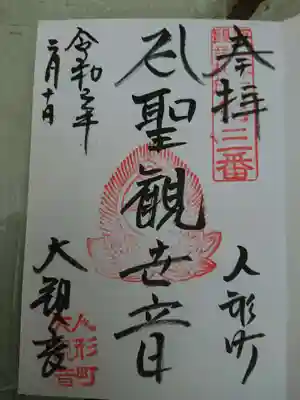 奉拝
三番
人形町
聖観世音
令和二年
二月十日
大観音
人形町
大観音